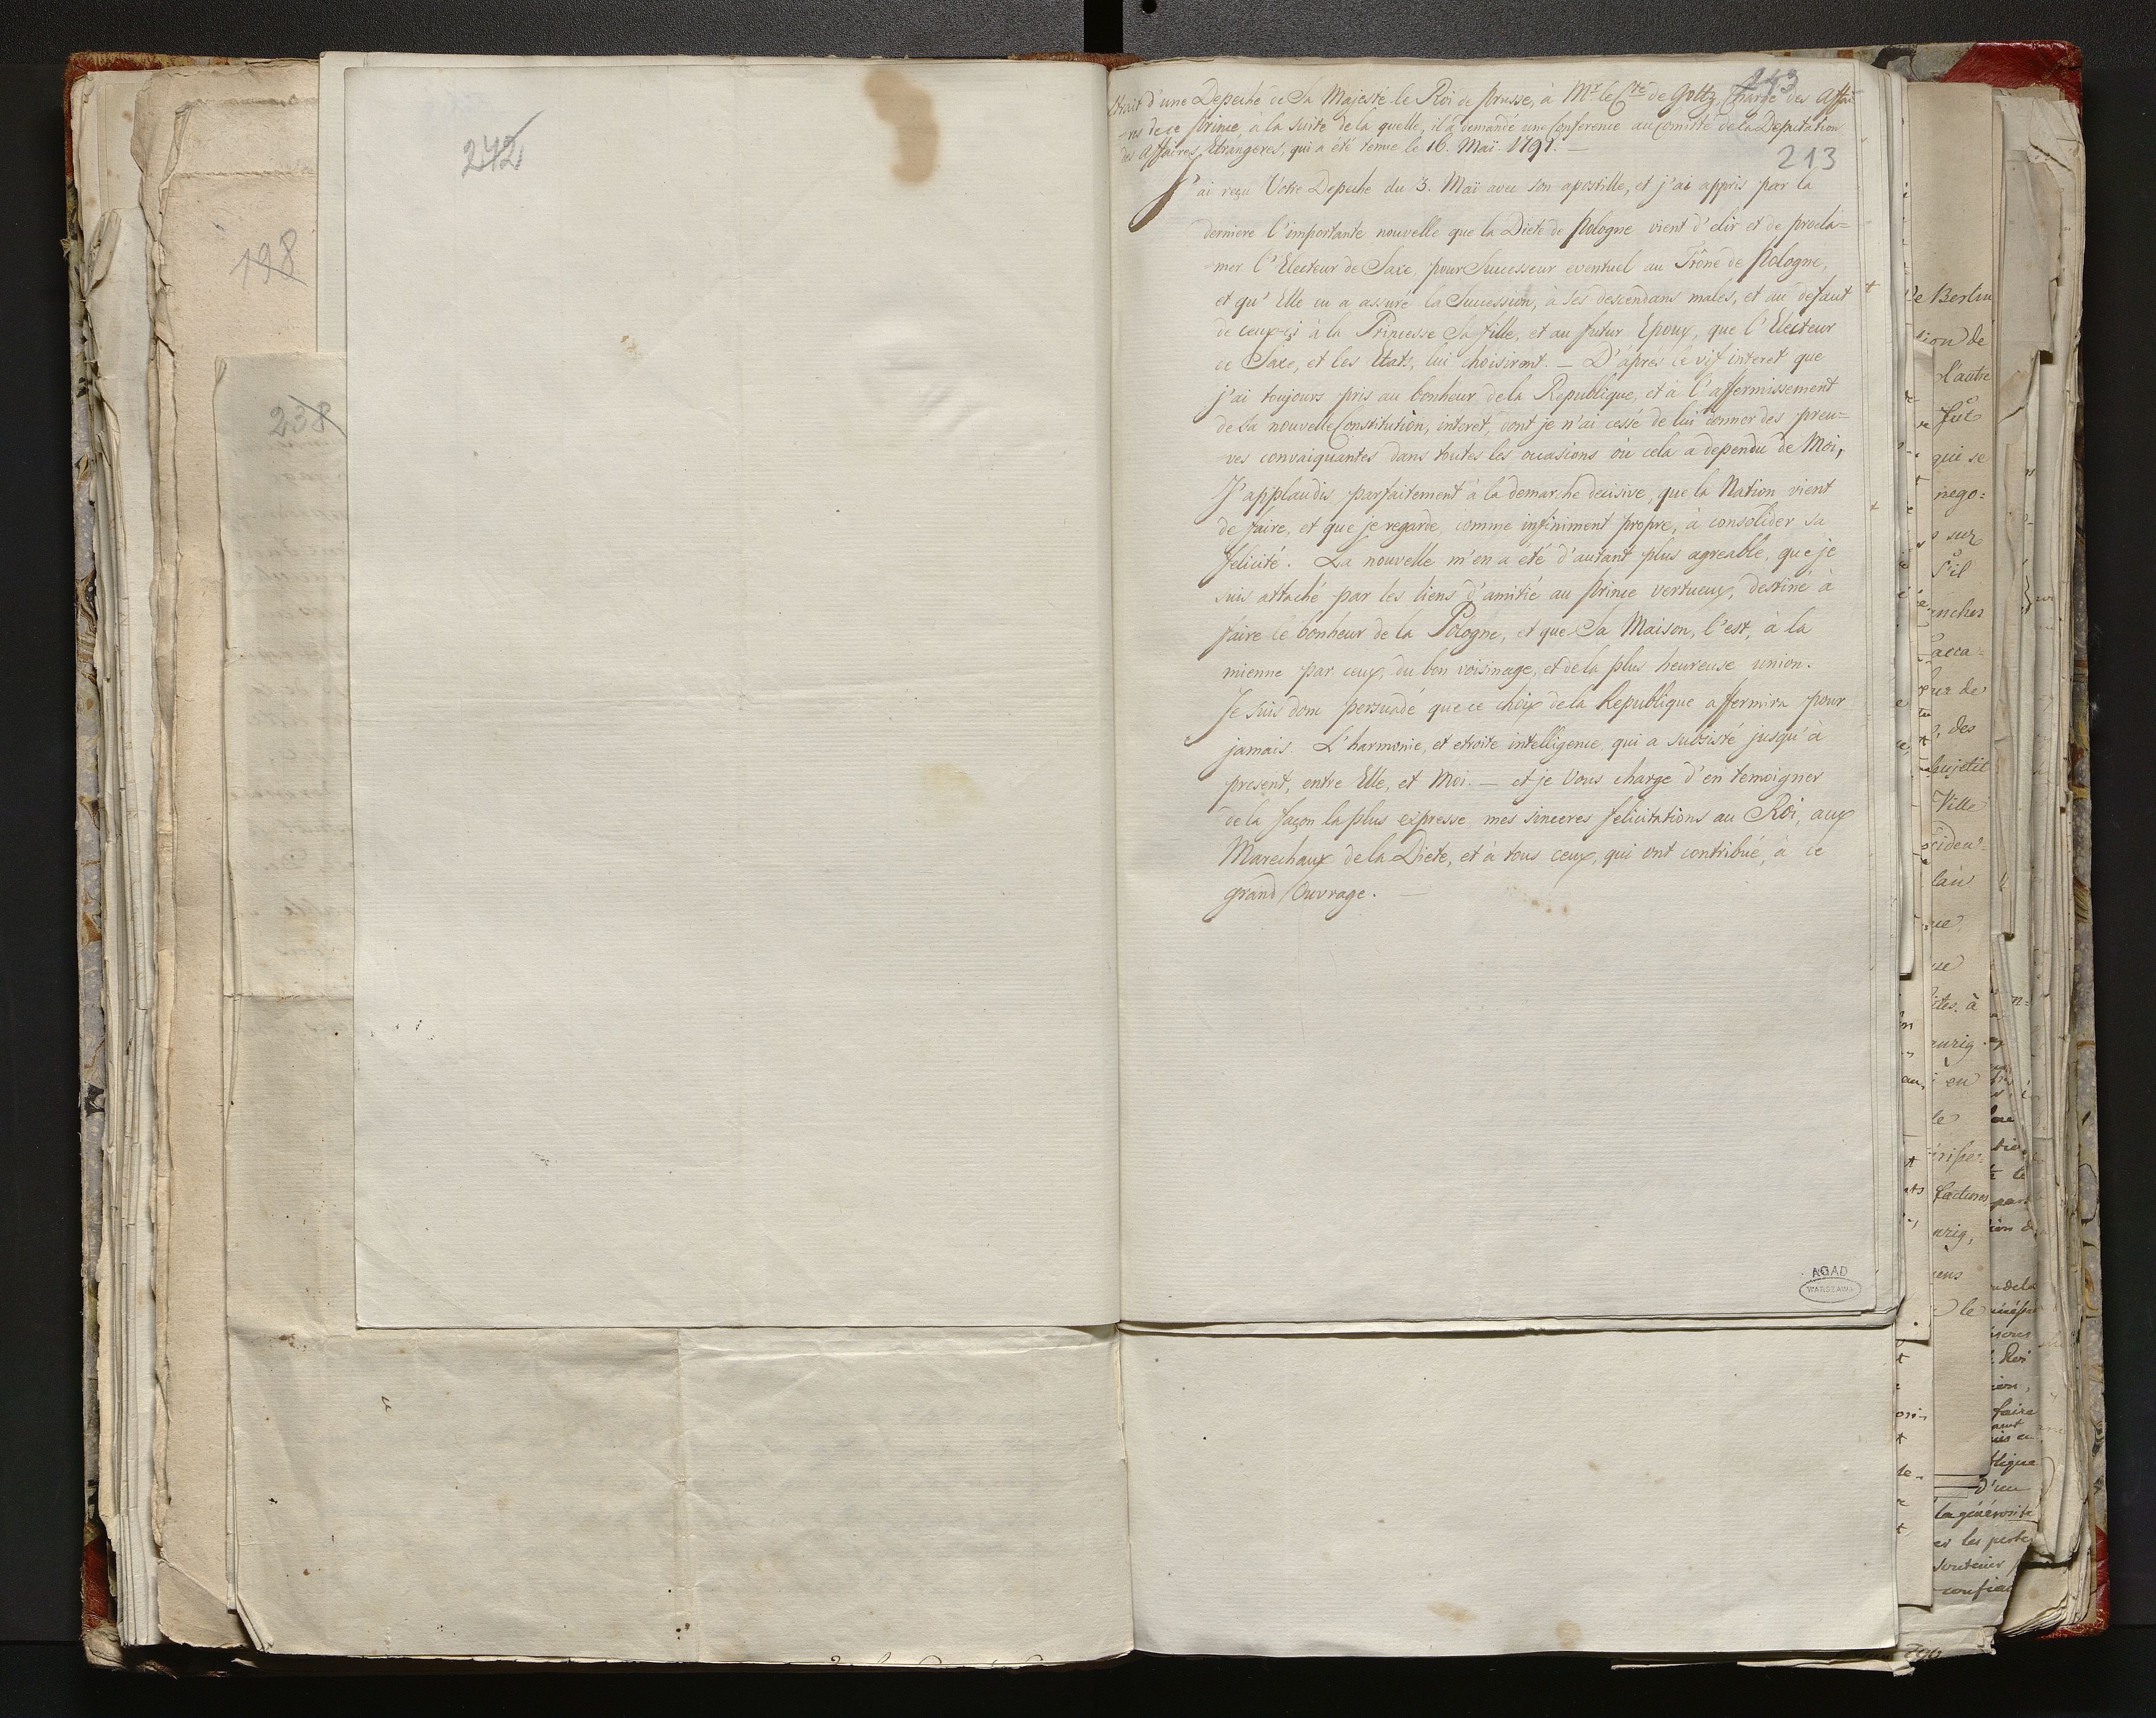 242
198
238
243
Extrait d'une Depeche de Sa Majesté le Roi de Prusse, à Mr. le Cte de Goltz, Chargé des Affai-
-res de ce Prince, à la suite de la quelle, il a demandé une Conference au Comité de la Deputation
des Affaires Etrangeres, qui a été tenue le 16. Maï. 1791. —
213
J'ai reçu Votre Depeche du 3. Maï avec son apostille, et j'ai appris par la
derniere l'importante nouvelle que la Diete de Pologne vient d'elir et de procla=
mer l'Electeur de Saxe, pour Successeur eventuel au Trône de Pologne,
et qu'Elle en a assuré la Succession, à ses descendans males, et au defaut
de ceux-çi à la Princesse Sa fille, et au futur Epoux, que l'Electeur
de Saxe, et les Etats, lui choisiront. — D'après le vif interet que
j'ai toujours pris au bonheur de la Republique, et à l'affermissement
de Sa nouvelle Constitution, interet, dont je n'ai cessé de lui donner des preu=
-ves convaiquantes dans toutes les occasions où cela a dependu de Moi,
J'applaudis parfaitement à la demarche decisive, que la Nation vient
de faire, et que je regarde comme infiniment propre, à consolider sa
felicité. La nouvelle m'en a été d'autant plus agreable, que je
suis attaché par les liens d'amitié au Prince vertueux, destiné à
faire le bonheur de la Pologne, et que Sa Maison, l'est, à la
mienne par ceux, du bon voisinage, et de la plus heureuse union.
Je suis donc persuadé que ce choix de la Republique affermira pour
jamais L'harmonie, et etroite intelligence qui a subsisté jusqu'à
present, entre Elle, et Moi. — et je Vous charge d'en temoigner
de la façon la plus expresse mes sinceres felicitations au Roi, aux
Marechaux de la Diete, et à tous ceux, qui ont contribué, à ce
grand Ouvrage. —
AGAD
WARSZAWA